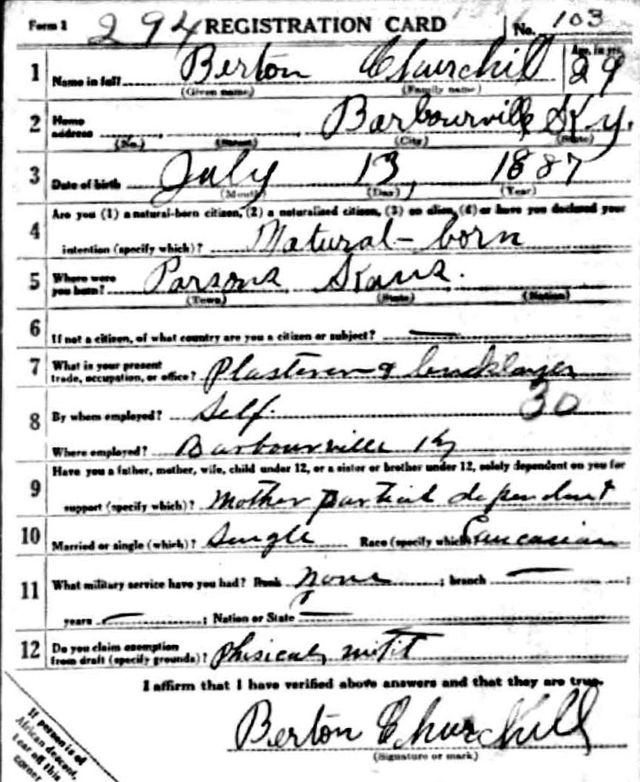 Form 1 294 REGISTRATION CARD No. 103
1 Name in full Berton Churchill Age, in yrs. 29
(Given name) (Family name)
2 Home address Barbourville Ky.
(No.) (Street) (City) (State)
3 Date of birth July 13, 1887
(Month) (Day) (Year)
Are you (1) a natural-born citizen, (2) a naturalized citizen, (3) an alien, (4) or have you declared your
4 intention (specify which)? Natural-born
5 Where were you born? Parsons Kans.
(Town) (State) (Nation)
6 If not a citizen, of what country are you a citizen or subject? —
7 What is your present trade, occupation, or office? Plasterer & bricklayer
8 By whom employed? Self. 30
Where employed? Barbourville Ky
Have you a father, mother, wife, child under 12, or a sister or brother under 12, solely dependent on you for
9 support (specify which)? Mother partial dependent
10 Married or single (which)? Single Race (specify which)? Caucasian
11 What military service have you had? Rank None ; branch — ;
years — ; Nation or State —
12 Do you claim exemption from draft (specify grounds)? Phisicaly unfit
I affirm that I have verified above answers and that they are true.
Berton Churchill
(Signature or mark)
If person is of
African descent,
tear off this
corner